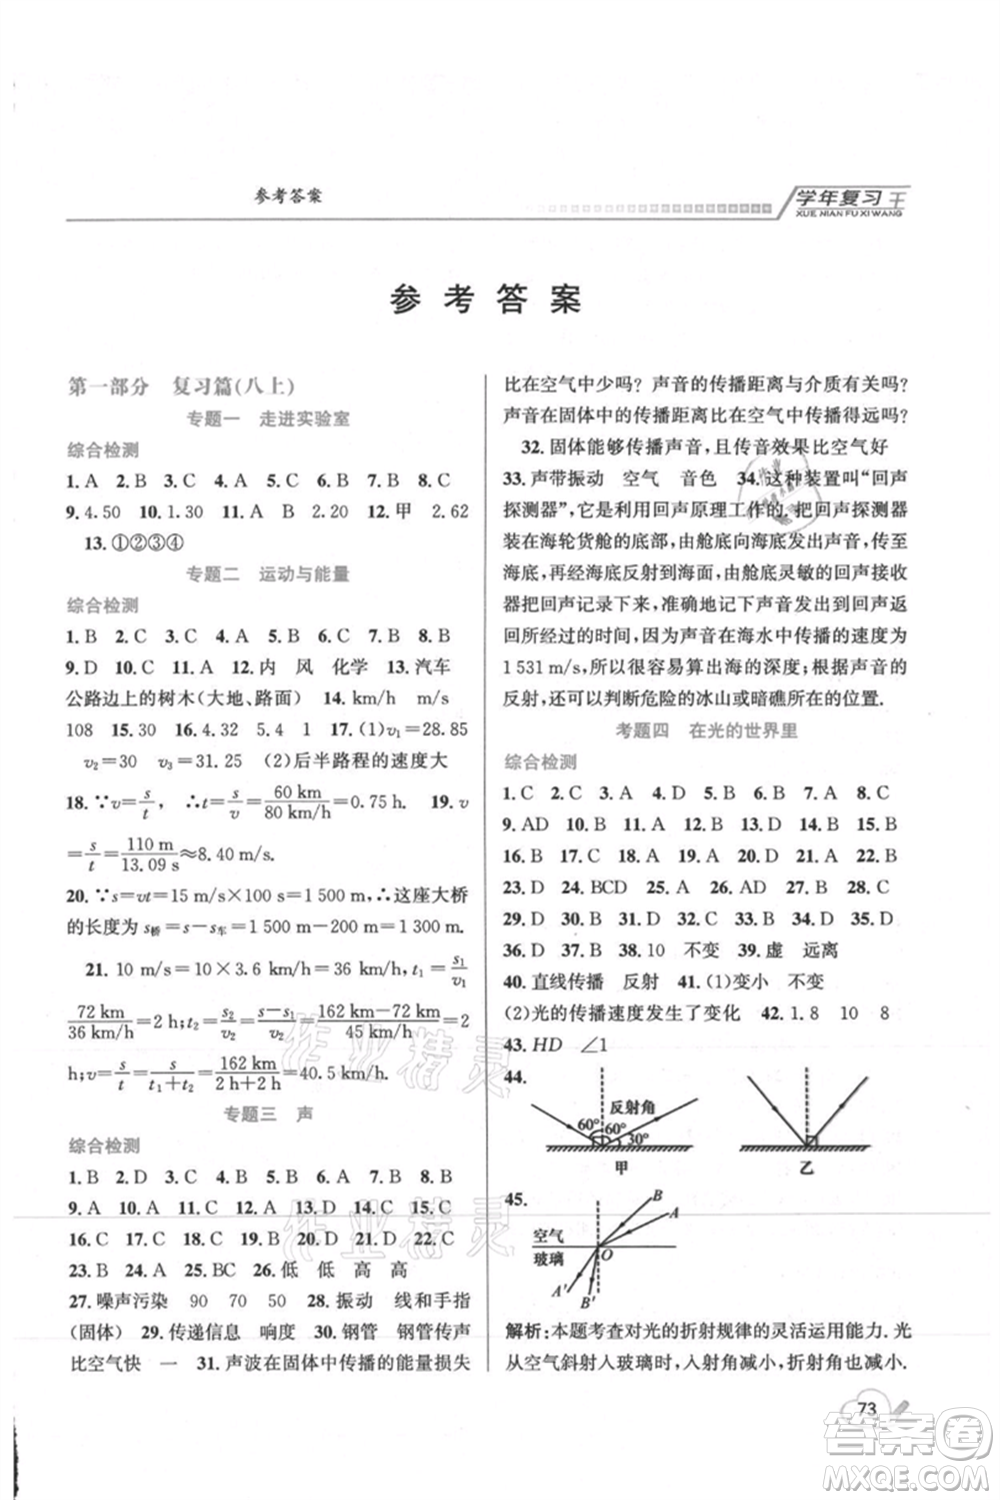 参考答案
学年复习王
XUE NIAN FU XI WANG
参 考 答 案
第一部分 复习篇(八上)
专题一 走进实验室
综合检测
1. A 2. B 3. C 4. B 5. C 6. B 7. C 8. D
9. 4.50 10. 1.30 11. A B 2.20 12. 甲 2.62
13. ①②③④
专题二 运动与能量
综合检测
1. B 2. C 3. D 4. C 5. D 6. B 7. C 8. B
9. D 10. D 11. B 12. 内 风 化学 13. 汽车
公路边上的树木(大地、路面) 14. km/h m/s
108 15. 30 16. 4.32 5.4 1 17. (1)v₁=28.85
v₂=30 v₃=29.46 (2)后半路程的速度大
18. ∵v=s/t ∴t=s/v=60 km/80 km/h=0.75 h. 19. v
=s/t=110 m/13.09 s≈8.40 m/s.
20. ∵s=vt=15 m/s×100 s=1 500 m ∴这座大桥
的长度为 s桥=s-s车=1 500 m-200 m=1 300 m.
21. 10 m/s=10×3.6 km/h=36 km/h, t₁=s₁/v₁=
72 km/36 km/h=2 h; t₂=s₂/v₂=s-s₁/v₂=162 km-72 km/45 km/h=2
h; v=s/t=s/t₁+t₂=162 km/2 h+2 h=40.5 km/h.
专题三 声
综合检测
1. B 2. D 3. C 4. D 5. B 6. B 7. C 8. D
9. A 10. A 11. A 12. A 13. C 14. D 15. D
16. C 17. B 18. D 19. A 20. B 21. D 22. C
23. B 24. D 25. BC 26. 低 低 高 高
27. 噪声污染 90 70 50 28. 振动 线和手指
(固体) 29. 传递信息 响度 30. 钢管 钢管传声
比空气快 一 31. 声波在固体中传播的能量损失
比在空气中少吗？声音的传播距离与介质有关吗？
声音在固体中的传播距离比在空气中传播得远吗？
32. 固体能够传播声音,且传音效果比空气好
33. 声带振动 空气 音色 34. 这种装置叫“回声
探测器”,它是利用回声原理工作的. 把回声探测器
装在海轮货舱的底部,由舱底向海底发出声音,传至
海底,再经海底反射到海面,由舱底灵敏的回声接收
器把回声记录下来,准确地记下声音发出到收到返
回所经过的时间,因为声音在海水中传播的速度为
1 531 m/s,所以很容易算出海的深度；根据声音的
反射,还可以判断危险的冰山或暗礁所在的方位.
考题四 在光的世界里
综合检测
1. C 2. C 3. A 4. C 5. B 6. A 7. B 8. C
9. AD 10. B 11. B 12. C 13. D 14. A 15. B
16. B 17. C 18. A 19. D 20. D 21. A 22. A
23. D 24. BCD 25. B 26. A 27. D 28. B
29. D 30. C 31. D 32. D 33. B 34. D 35. D
36. D 37. B 38. 10 不变 39. 虚 远离
40. 直线传播 反射 41. (1)变小 不变
(2)光的传播速度发生了变化 42. 1.8 10 8
43. HD ∠1
44.
反射角
60° 60° 30°
甲 乙
45.
B
A
空气
玻璃
O
A′
B′
解析:本题考查对光的折射规律的灵活运用能力. 光
从空气斜射入玻璃时,入射角减小,折射角也减小.
73
作业精灵
作业精灵
答案圈
MXQE.COM